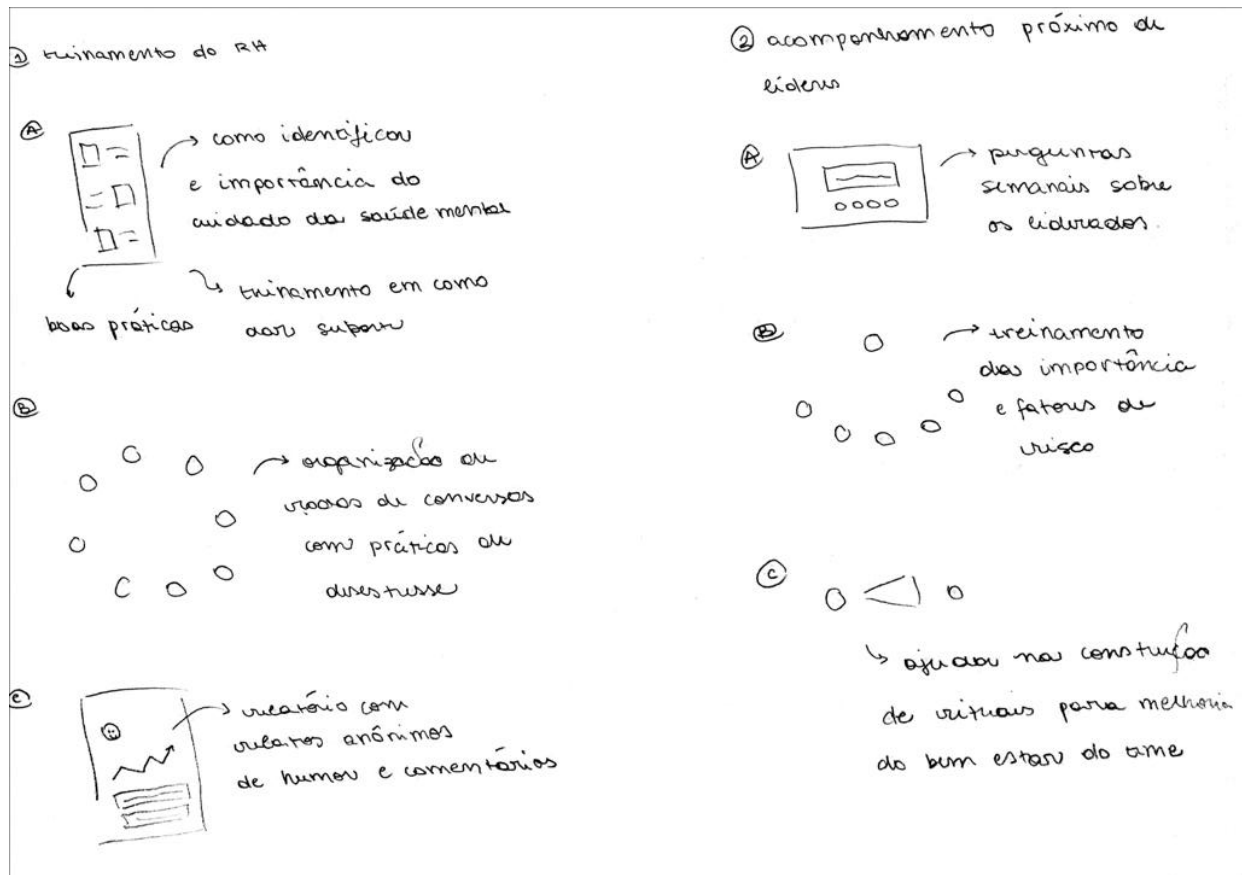 ① treinamento do RH
Ⓐ
como identificar
e importância do
cuidado da saúde mental
boas práticas
treinamento em como
dar suporte
Ⓑ
organização de
rodas de conversas
com práticas de
desestresse
Ⓒ
relatório com
relatos anônimos
de humor e comentários
② acompanhamento próximo de
líderes
Ⓐ
perguntas
semanais sobre
os liderados.
Ⓑ
treinamento
da importância
e fatores de
risco
Ⓒ
ajudar na construção
de rituais para melhoria
do bem estar do time